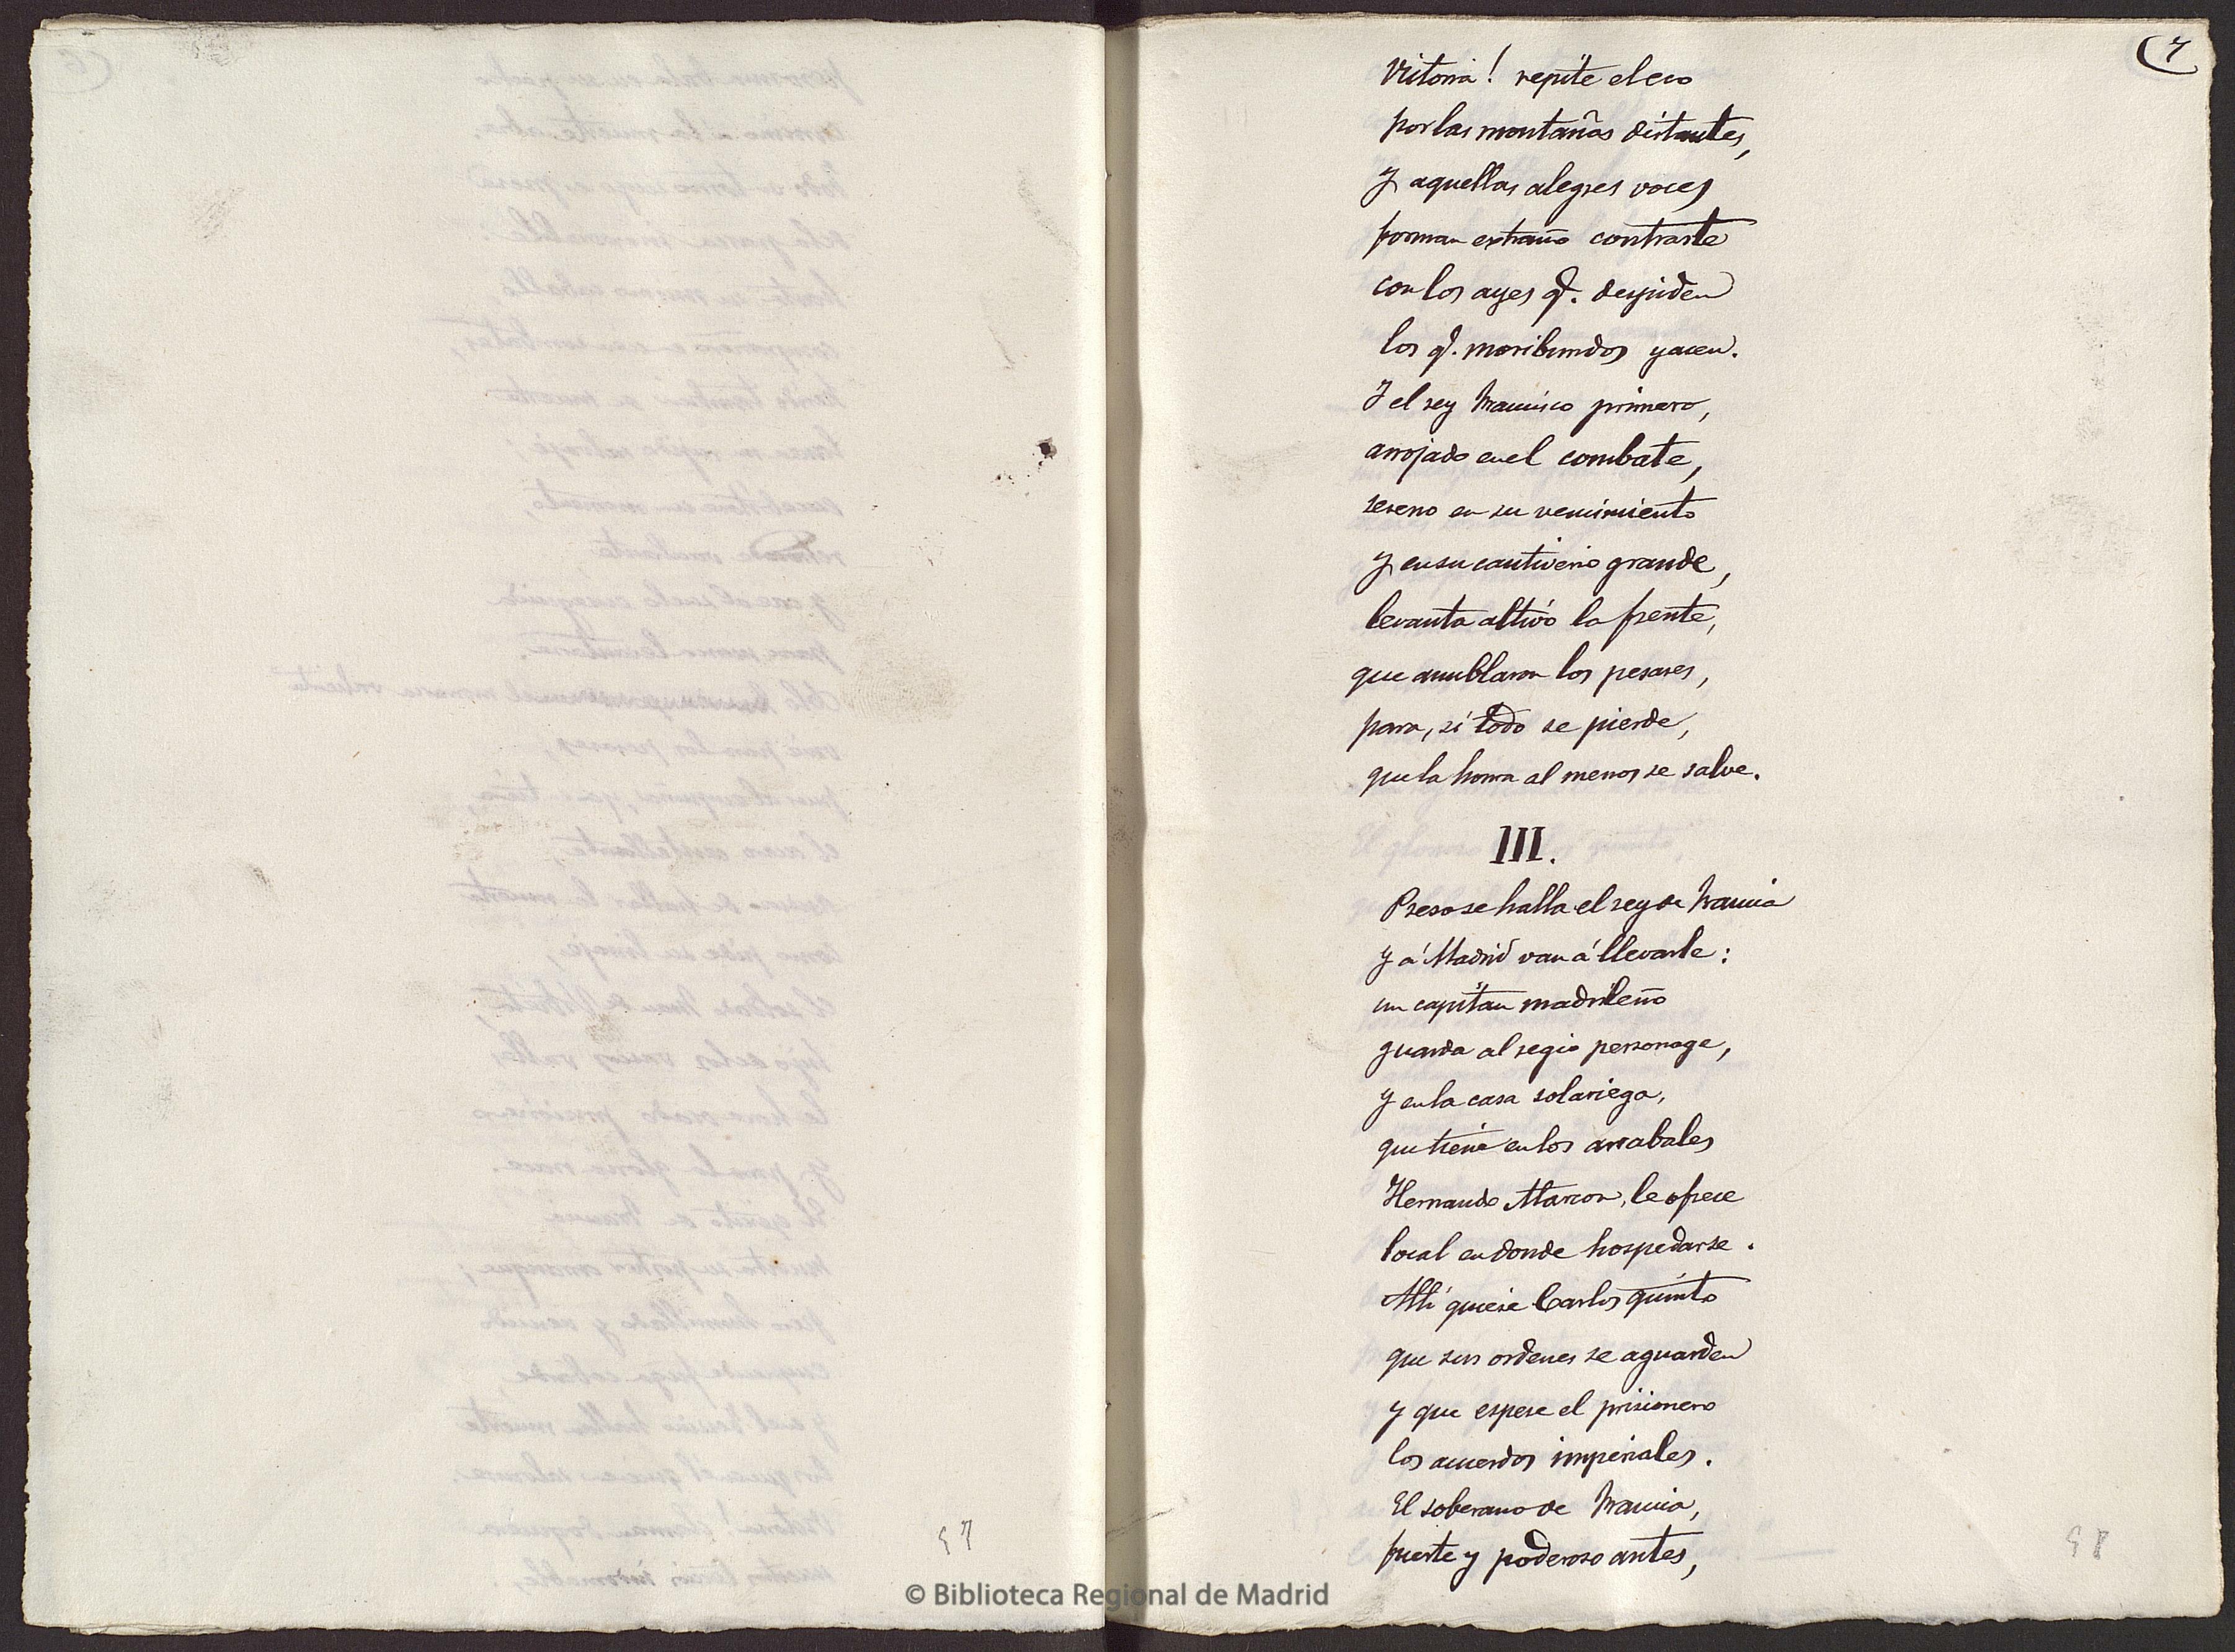 (7
Vitoria! repite el eco
por las montañas distantes,
y aquellas alegres voces
forman extraño contraste
con los ayes q. despiden
los q. moribundos yacen.
Y el rey Francisco primero,
arrojado en el combate,
sereno en su vencimiento
y en su cautiverio grande,
levanta altivo la frente,
que anublaron los pesares,
para, si todo se pierde,
que la honra al menos se salve.
III.
Preso se halla el rey de Francia
y á Madrid van á llevarle:
un capitan madrileño
guarda al regio personage,
y en la casa solariega,
que tiene en los arrabales
Hernando Alarcon, le ofrece
local en donde hospedarse.
Allí quiere Carlos quinto
que sus ordenes se aguarden
y que espere el prisionero
los acuerdos imperiales.
El soberano de Francia,
fuerte y poderoso antes,
57
58
© Biblioteca Regional de Madrid